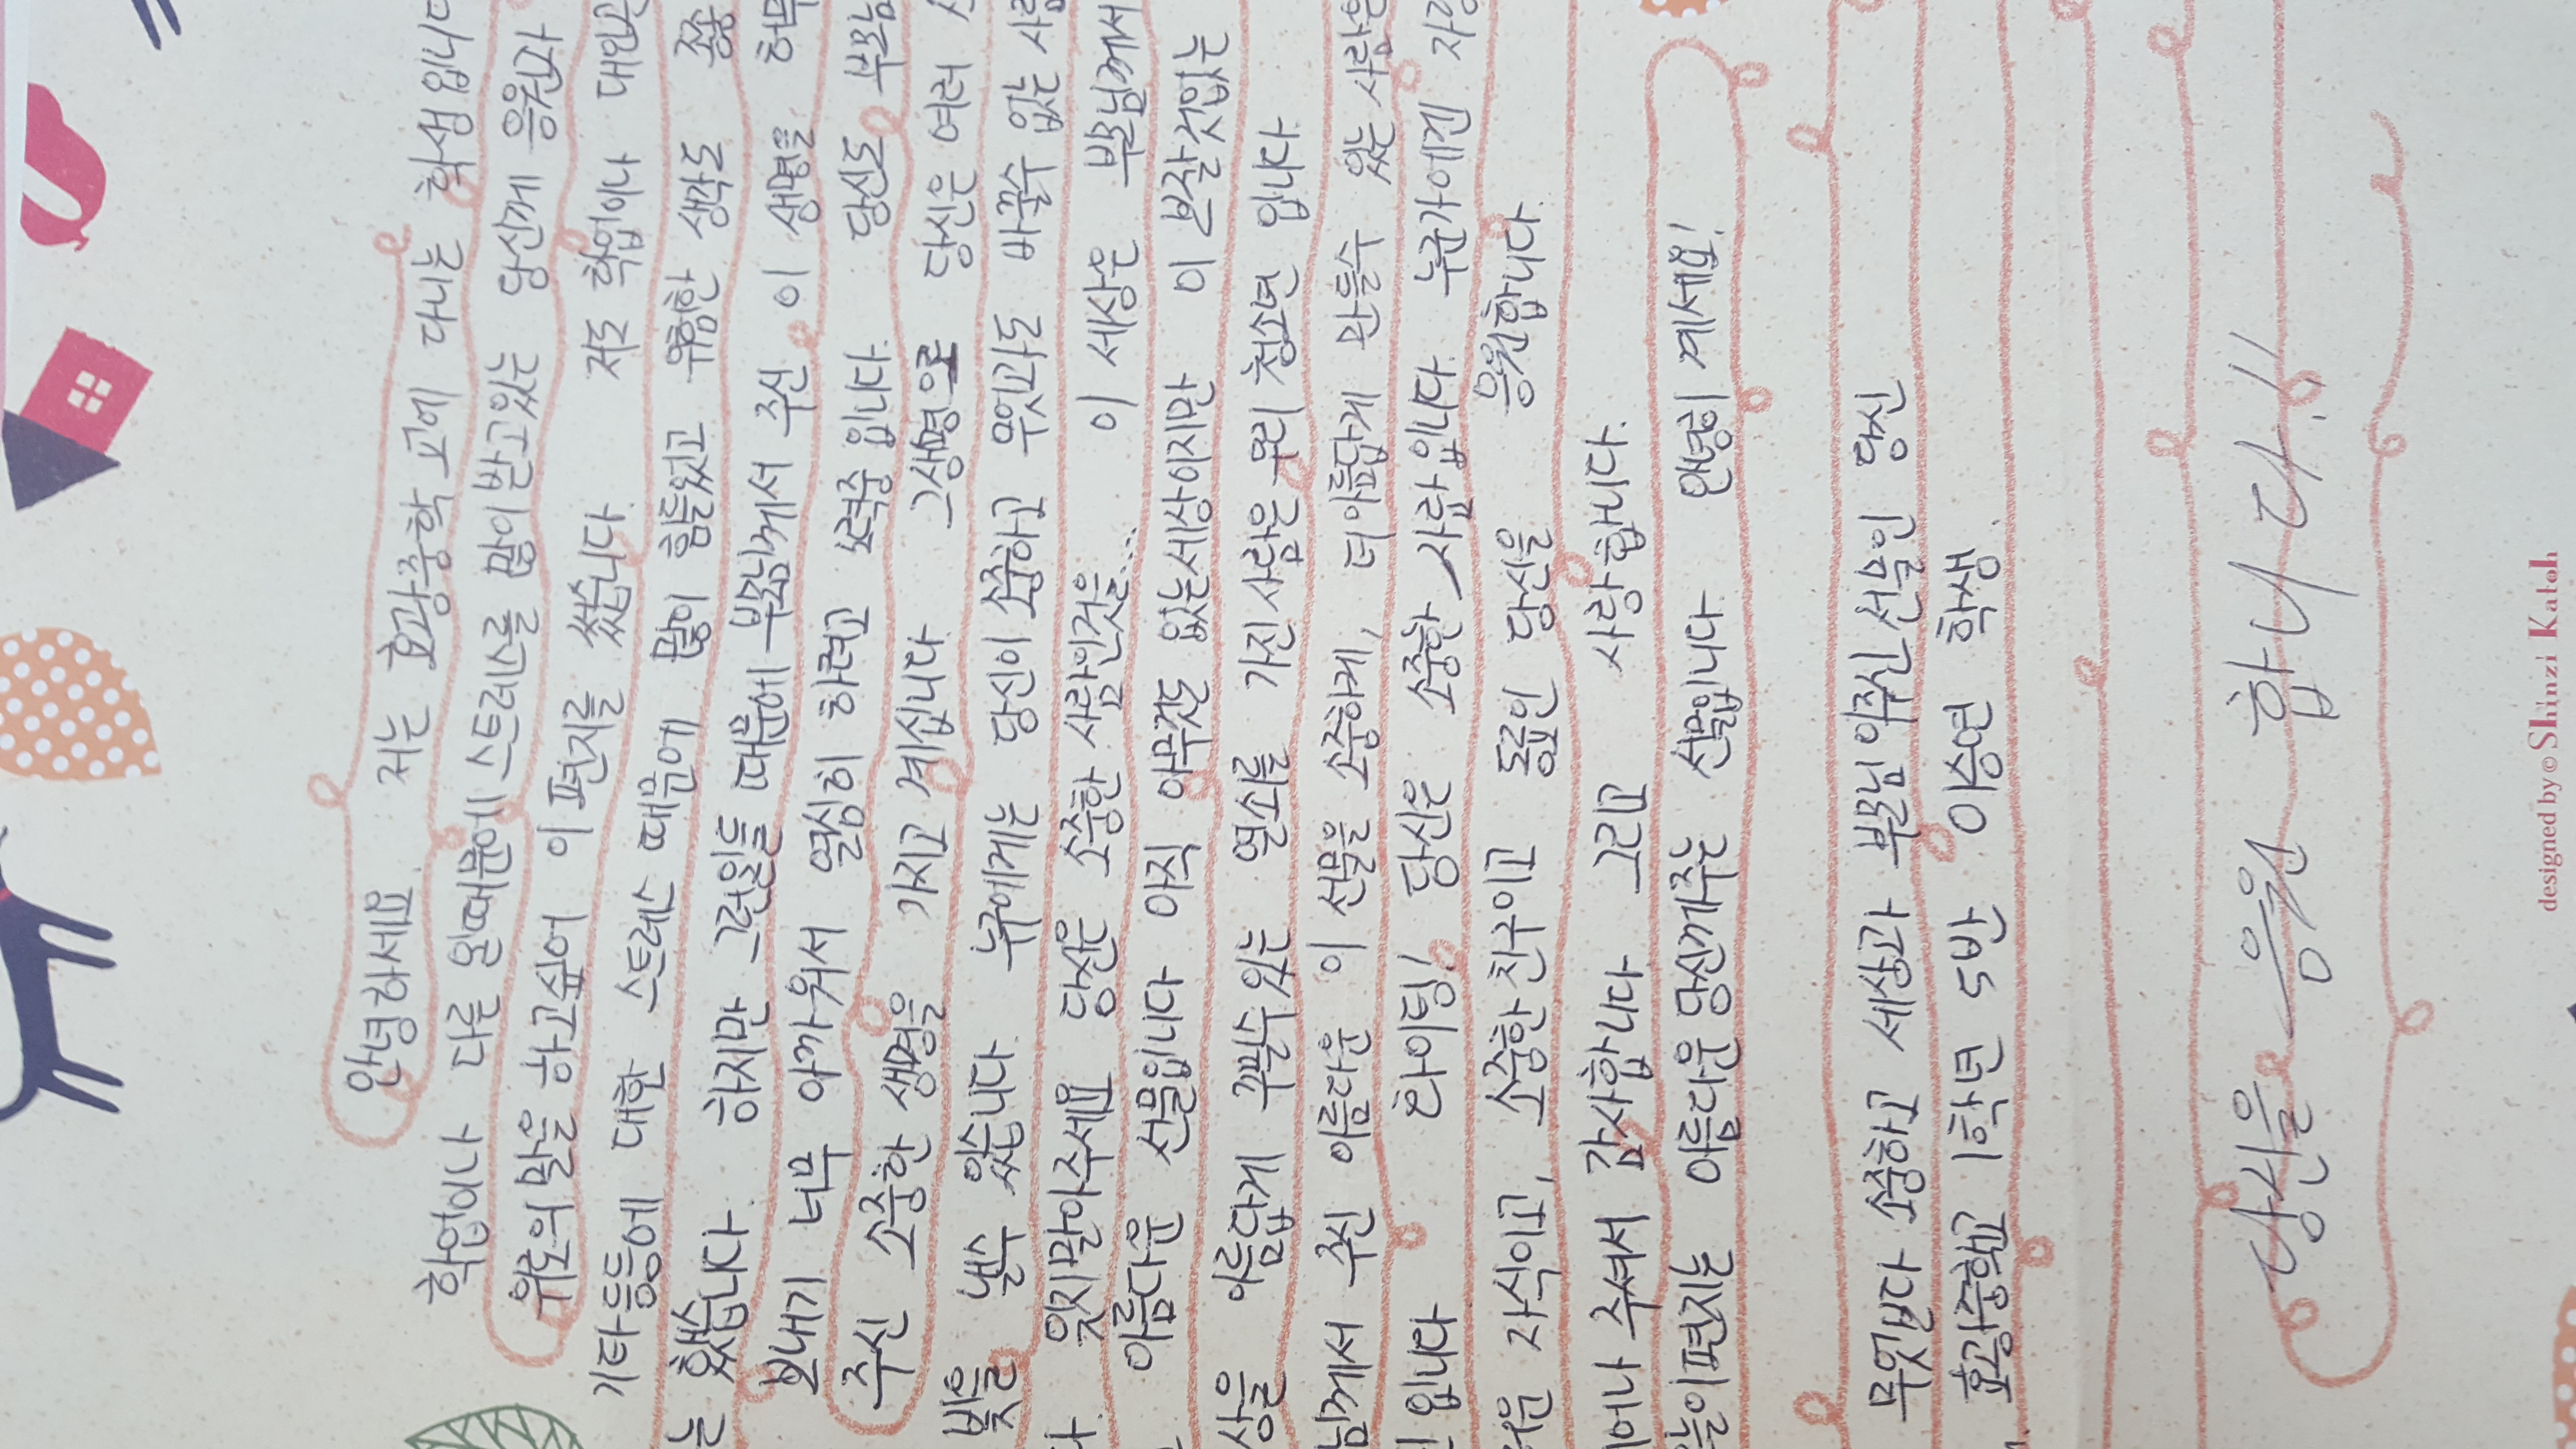 안녕하세요. 저는 효광중학교에 다니는 학생입니다
학업이나 다른 일때문에 스트레스를 많이받고있는 당신께 응원과
위로의말을 하고싶어 이편지를 썼습니다. 저도 학업이나 대인관
기타등등에 대한 스트레스 때문에 많이 힘들었고 우울한 생각도 종종
는 했습니다. 하지만 그런일들 때문에 부모님께서 주신 이 생명을 허무
보내기 너무 아까워서 열심히 하려고 노력중입니다. 당신도 부모님
주신 소중한 생명을 가지고 계십니다 그생명으로 당신은 여러
빛을 낼수 있습니다. 누구에게는 당신이 소중하고 무엇과도 바꿀수 없는 사람
다. 잊지말아주세요 당신은 소중한 사람인것을... 이 세상은 부모님께서
아름다운 선물입니다 아직 아무것도 없는세상이지만 이 보잘것없는
상을 아름답게 꾸밀수있는 열쇠를 가진사람은 우리 청소년 입니다
님께서 주신 아름다운 이 선물을 소중하게, 더아름답게 만들수 있는 사람은
입니다 화이팅! 당신은 소중한 사람입니다. 누군가에겐 자랑
러운 자식이고, 소중한친구이고 동료인 당신을 응원합니다.
태어나 주셔서 감사합니다 그리고 사랑합니다.
늘이편지는 아름다운 당신께주는 선물입니다 안녕히 계세요!
무엇보다 소중하고 세상과 부모님이주신 선물인 당신
효광중학교 1학년 5반 이승연 학생.
당신을 응원 합니다!!
designed by © Shinzi Katoh